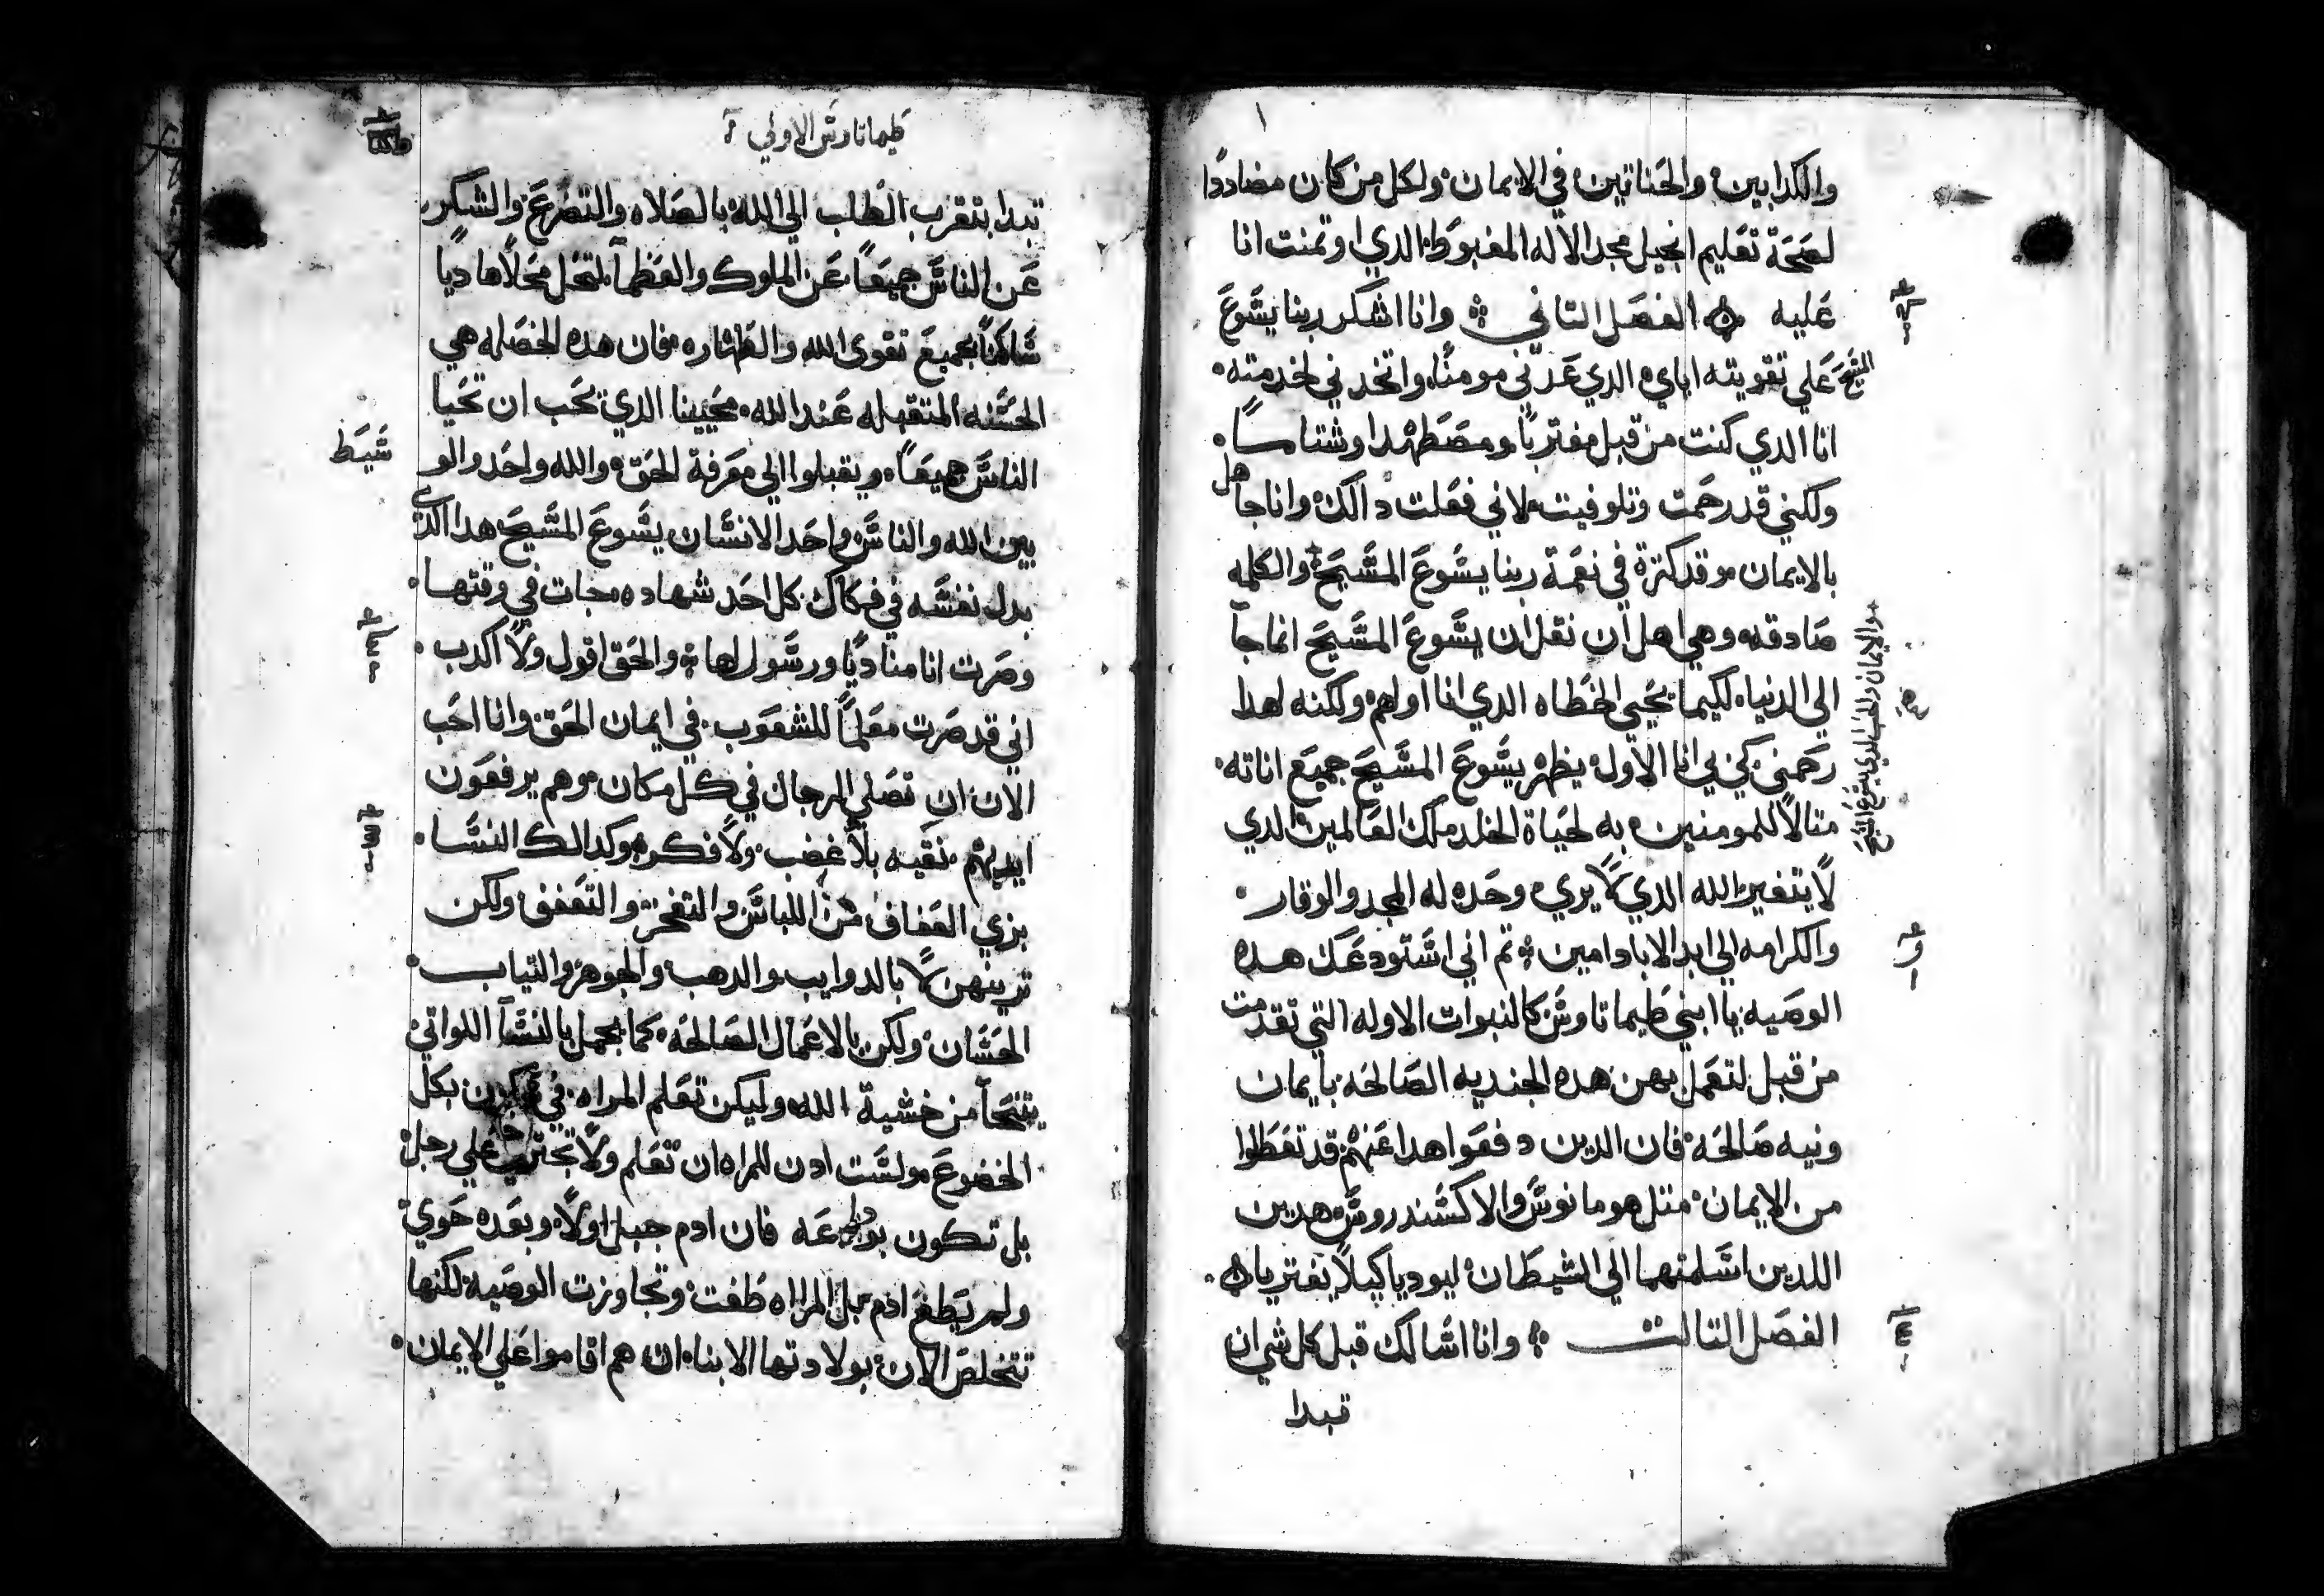 والكدابين والحناتين في الايمان ولكل من كان مضاددًا
لصحة تعليم انجيل مجد الاله المغبوط الدي اوتمنت انا
عليه الفصل التاني وانا اشكر ربنا يشوع
المشيح علي تقويته اياي الدي عدني مومنًا واتخدني لخدمته
انا الدي كنت من قبل مفتريًا ومضطهدا وشتامًا
ولكني قد رحمت وتلوفيت لاني فعلت دالك وانا جاهل
بالايمان وقد كترة في نعمة ربنا يشوع المشيح والكلمه
والايمان والحب الدي بيشوع المشيح
صادقه وهي اهل ان نقل ان يشوع المشيح انما جآ
الي الدنيا لكيما يحيي الخطاه الدي انا اولهم ولكنه لهدا
رحمني كي بي انا الاول يظهر يشوع المشيح جميع اناته
متالًا للمومنين به لحياة الخلد ملك العالمين الدي
لا يتغير الله الدي لا يري وحده له المجد والوقار
والكرامه الي ابد الاباد امين تم اني اشتودعك هده
الوصيه يا ابني طيماتاوش كالنبوات الاوله التي تقدمت
من قبل لتعمل بهن هده الجنديه الصالحه بايمان
ونيه صالحه فان الدين دفعوا هدا عنهم قد تعطلوا
من الايمان متل هومانوش والاكشندروش هدين
اللدين اشلمتهما الي الشيطان ليوديا كيلا يفتريا
الفصل التالت وانا اشالك قبل كل شي ان
تبدا
طيماتاوش الاولي
تبدا بتقرب الطلب الي الله بالصلاه والتضرع والشكر
عن الناش جميعًا عن الملوك والعظمآ لتحل محلًا هاديًا
شاكنًا بجميع تقوي الله والطهاره فان هده الخصله هي
الحشنه المتقبله عند الله محيينا الدي يحب ان تحيا
الناش جميعًا ويقبلوا الي معرفة الحق والله واحد والو
شيط
بين الله والناش واحد الانشان يشوع المشيح هدا الدي
بدل نفشه في فكاك كل احد شهاده جات في وقتها
وصرت انا مناديًا ورشول لها والحق اقول ولا اكدب
اني قد صرت معلمًا للشعوب في ايمان الحق وانا احب
الان ان تصلي الرجال في كل مكان وهم يرفعون
ايديهم نقيه بلا غضب ولا فكر وكدالك النشا
بزي العفاف من اللباش والتفخر والتعفف ولكن
تزينهن لا بالدوايب والدهب والجوهر والتياب
الحشان ولكن بالاعمال الصالحه كما يجمل بالنشآ اللواتي
من خشية الله وليكن تعلم المراه في بكل
الخضوع ولشت ادن للمراه ان تعلم ولا تجتري علي رجل
بل تكون بوداعه فان ادم جبل اولًا وبعده حوي
ولم يطغ ادم بل المراه طغت وتجاوزت الوصيه لكنها
تتخلص الان بولادتها الابنا ان هم اقاموا علي الايمان